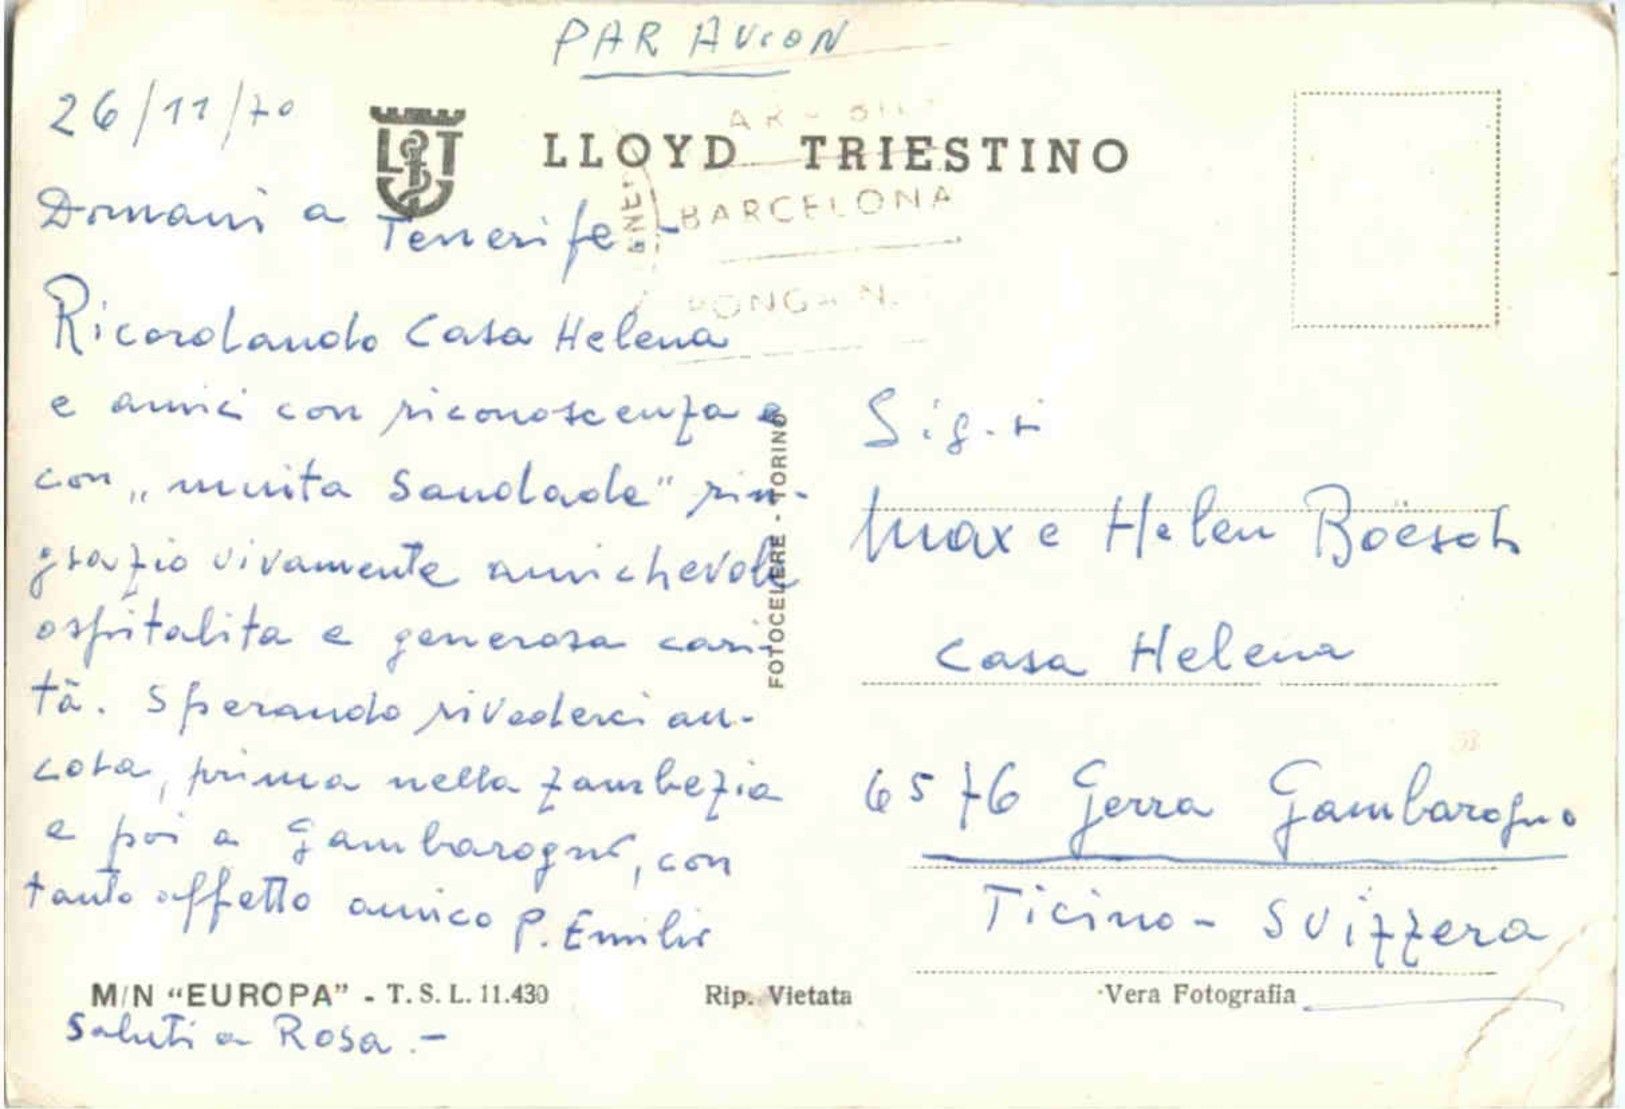 PAR AVION
26/11/70
LLOYD TRIESTINO
Domani a Tenerife -
BARCELONA
Ricordando Casa Helena
e amici con riconoscenza e
con „muita Saudade" rin-
grazio vivamente amichevole
ospitalita e generosa cari-
tà. Sperando rivederci an-
cora, prima nella Zambezia
e poi a Gambarogno, con
tanto affetto amico P. Emilio
FOTOCELERE - TORINO
Sig.ri
Max e Helen Boësch
Casa Helena
6576 Gerra Gambarogno
Ticino - Svizzera
M/N “EUROPA” - T. S. L. 11.430
Rip. Vietata
Vera Fotografia
Saluti a Rosa. -